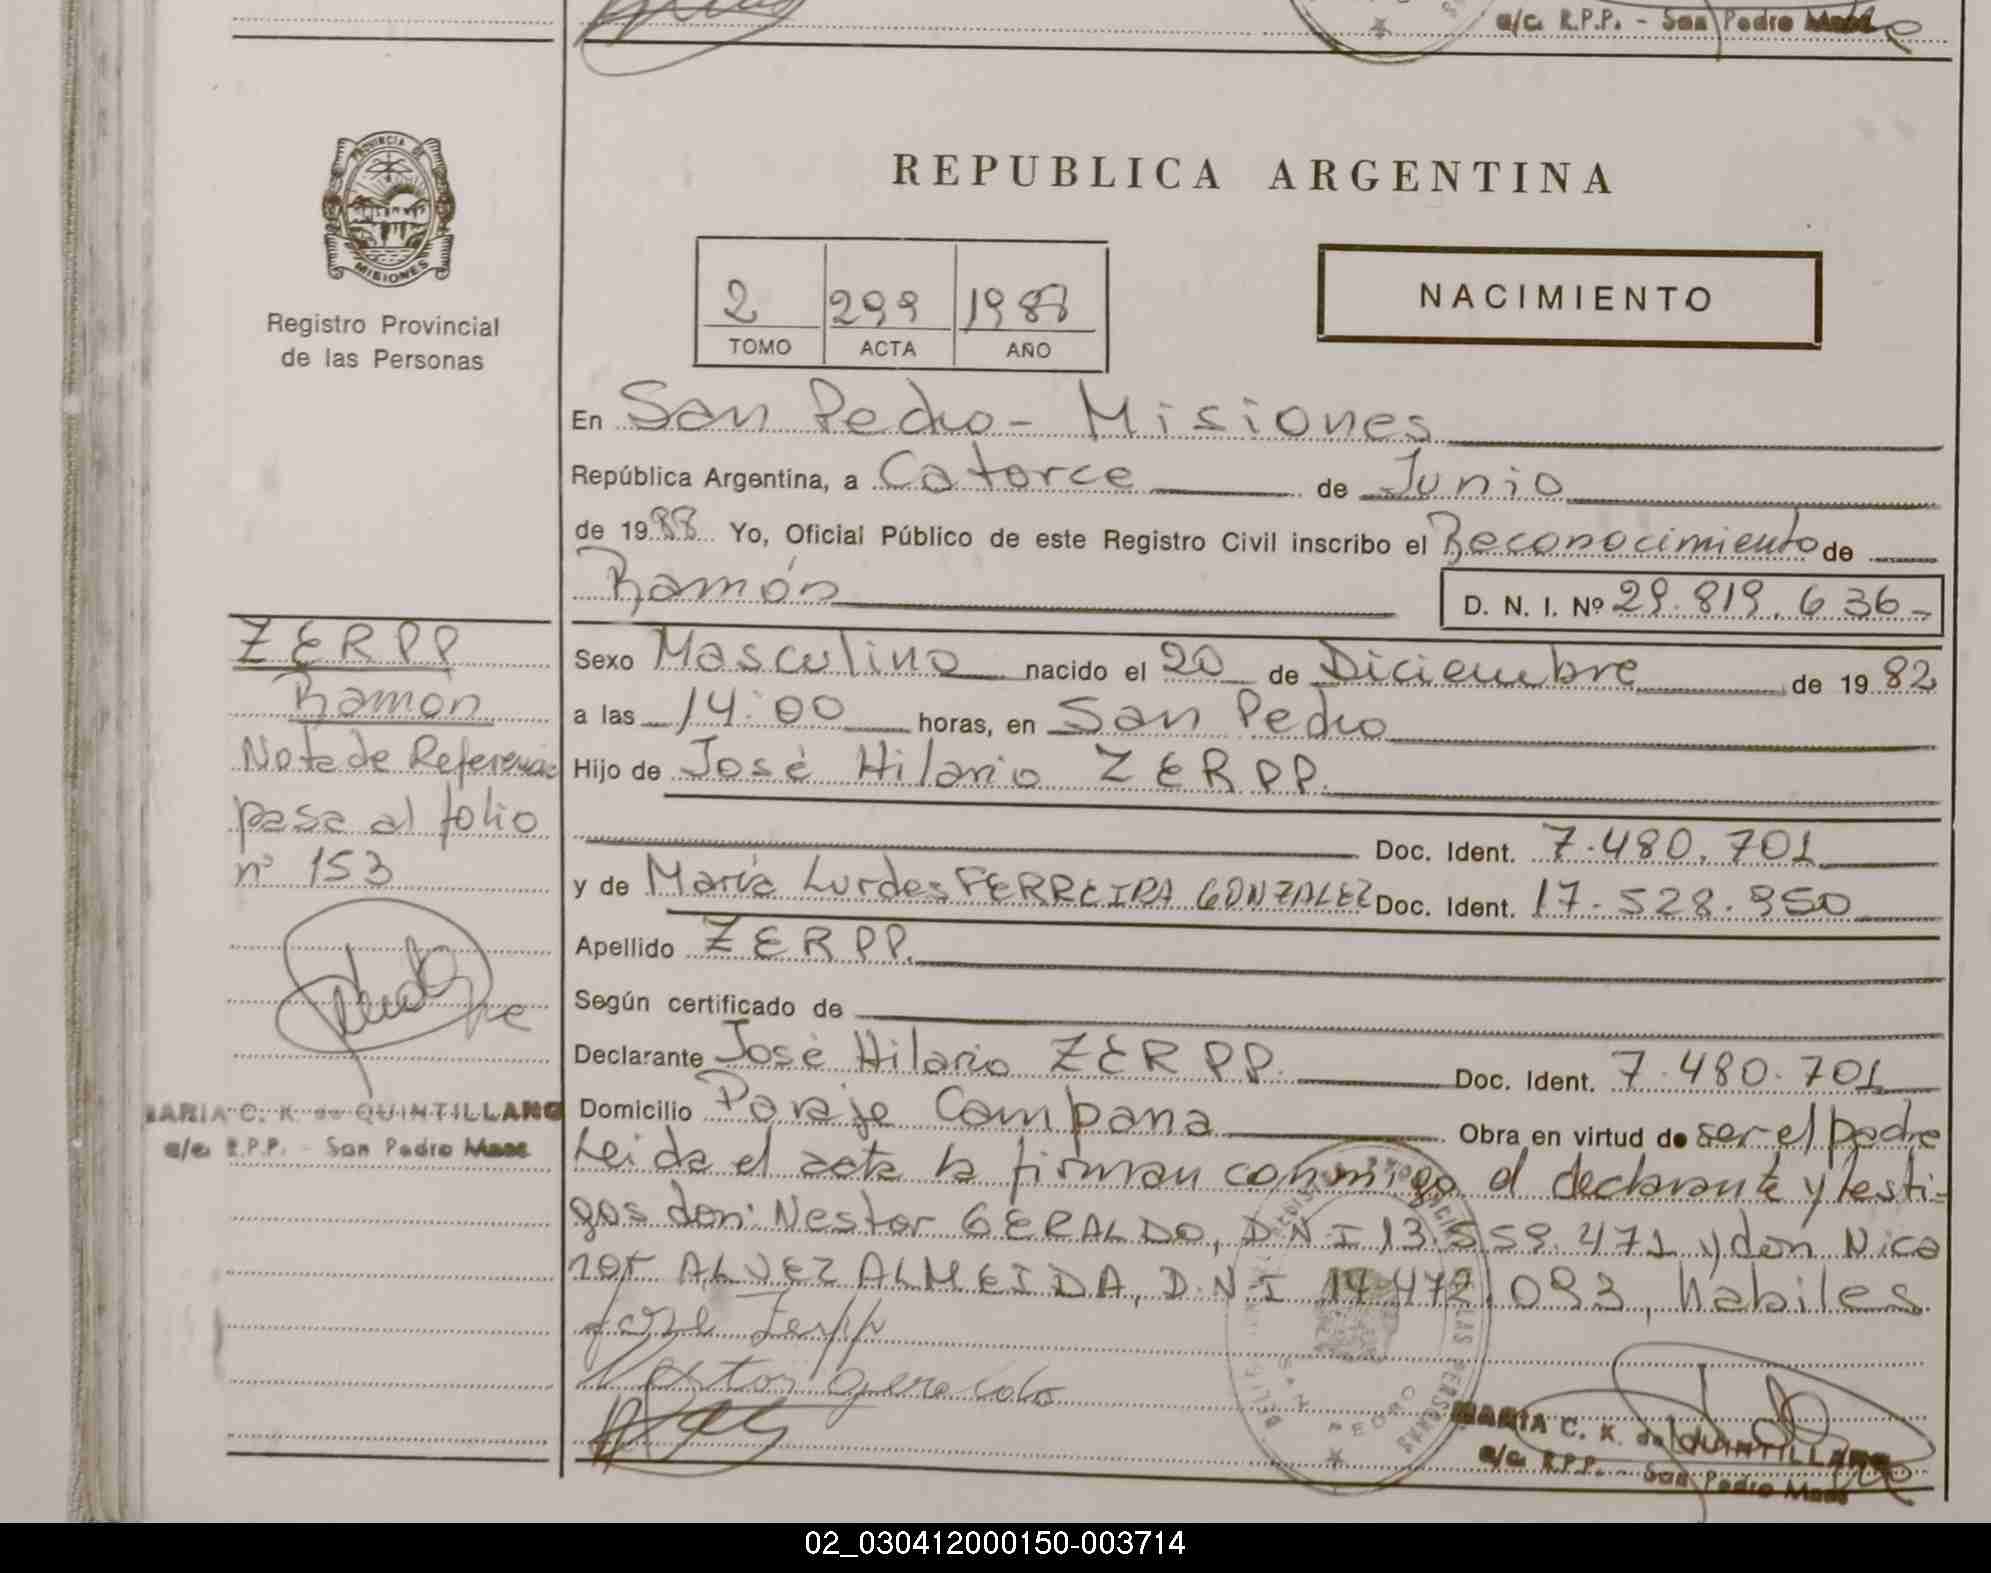 a/c. R.P.P. - San Pedro Mnes
PROVINCIA DE
MISIONES
Registro Provincial
de las Personas
REPUBLICA ARGENTINA
2 299 1988
TOMO ACTA AÑO
NACIMIENTO
En San Pedro - Misiones
República Argentina, a Catorce de Junio
de 1988 Yo, Oficial Público de este Registro Civil inscribo el Reconocimiento de
Ramón D. N. I. Nº 29.819.636-
ZERPP
Ramón
Nota de Referencia
pasa al folio
nº 153
MARIA C. K. de QUINTILLANO
a/c. R.P.P. - San Pedro Mnes
Sexo Masculino nacido el 20 de Diciembre de 1982
a las 14:00 horas, en San Pedro
Hijo de José Hilario ZERPP.
Doc. Ident. 7.480.701
y de María Lurdes FERREIRA GONZALEZ Doc. Ident. 17.528.950
Apellido ZERPP.
Según certificado de
Declarante José Hilario ZERPP. Doc. Ident. 7.480.701
Domicilio Paraje Campana Obra en virtud de ser el padre
Leida el acta la firman conmigo el declarante y testi-
gos don: Nestor GERALDO, D.N.I 13.559.471 y don Nica
nor ALVEZ ALMEIDA, D.N.I 14.472.093, habiles
Jose Zerpp
Nestor Geraldo
SAN PEDRO
MARIA C. K. de QUINTILLANO
a/c. R.P.P. - San Pedro Mnes
02_030412000150-003714